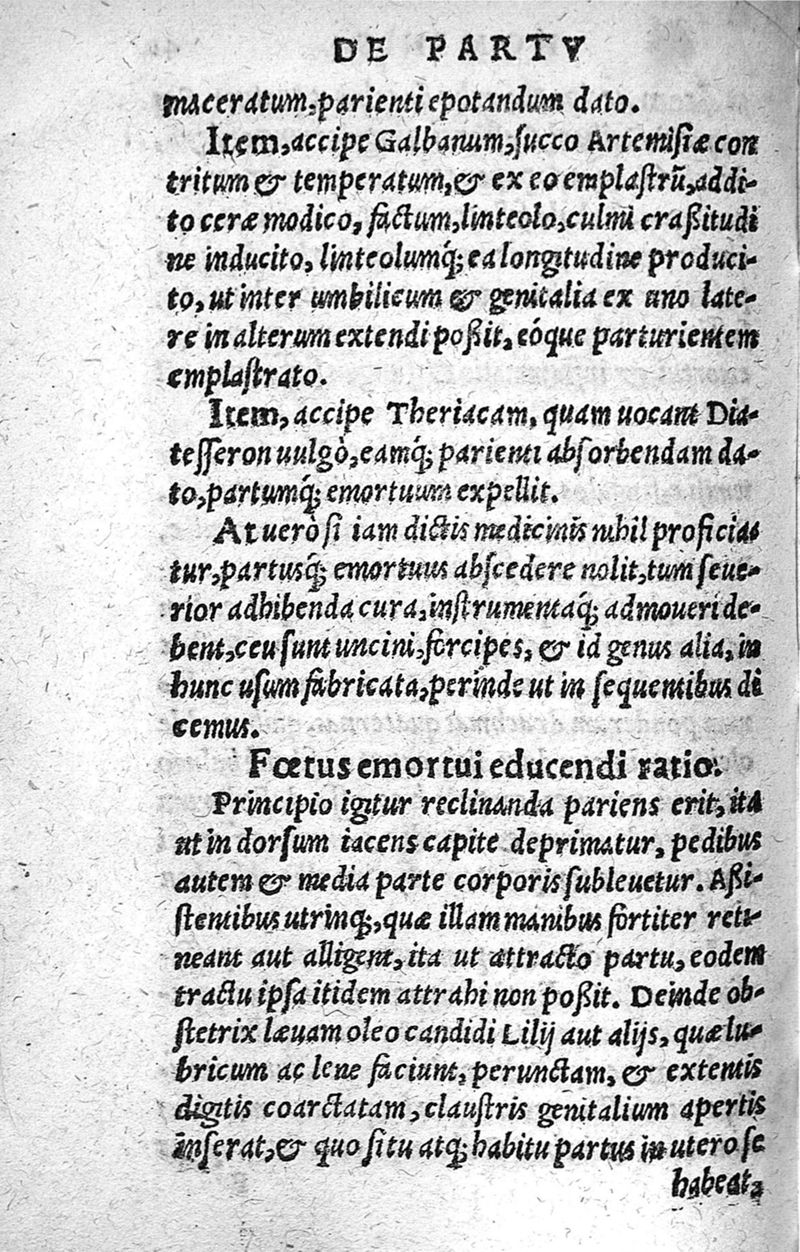 DE PARTV
maceratum, parienti epotandum dato.
Item, accipe Galbanum, succo Artemisiæ con
tritum & temperatum, & ex eo emplastrũ, addi-
to ceræ modico, factum, linteolo, culmi craßitudi
ne inducito, linteolumq́; ea longitudine produci-
to, ut inter umbilicum & genitalia ex uno late-
re in alterum extendi poßit, eóque parturientem
emplastrato.
Item, accipe Theriacam, quam uocant Dia-
tesseron uulgò, eamq́; parienti absorbendam da-
to, partumq́; emortuum expellit.
At uerò si iam dictis medicinis nihil proficia
tur, partusq́; emortuus abscedere nolit, tum seue-
rior adhibenda cura, instrumentaq́; admoueri de-
bent, ceu sunt uncini, forcipes, & id genus alia, in
hunc usum fabricata, perinde ut in sequentibus di
cemus.
Fœtus emortui educendi ratio.
Principio igitur reclinanda pariens erit, ita
ut in dorsum iacens capite deprimatur, pedibus
autem & media parte corporis subleuetur. Aßi-
stentibus utrinq;, quæ illam manibus fortiter reti-
neant aut alligent, ita ut attracto partu, eodem
tractu ipsa itidem attrahi non poßit. Deinde ob-
stetrix læuam oleo candidi Lilij aut alijs, quæ lu-
bricum ac lene faciunt, perunctam, & extentis
digitis coarctatam, claustris genitalium apertis
inserat, & quo situ atq; habitu partus in utero se
habeat,